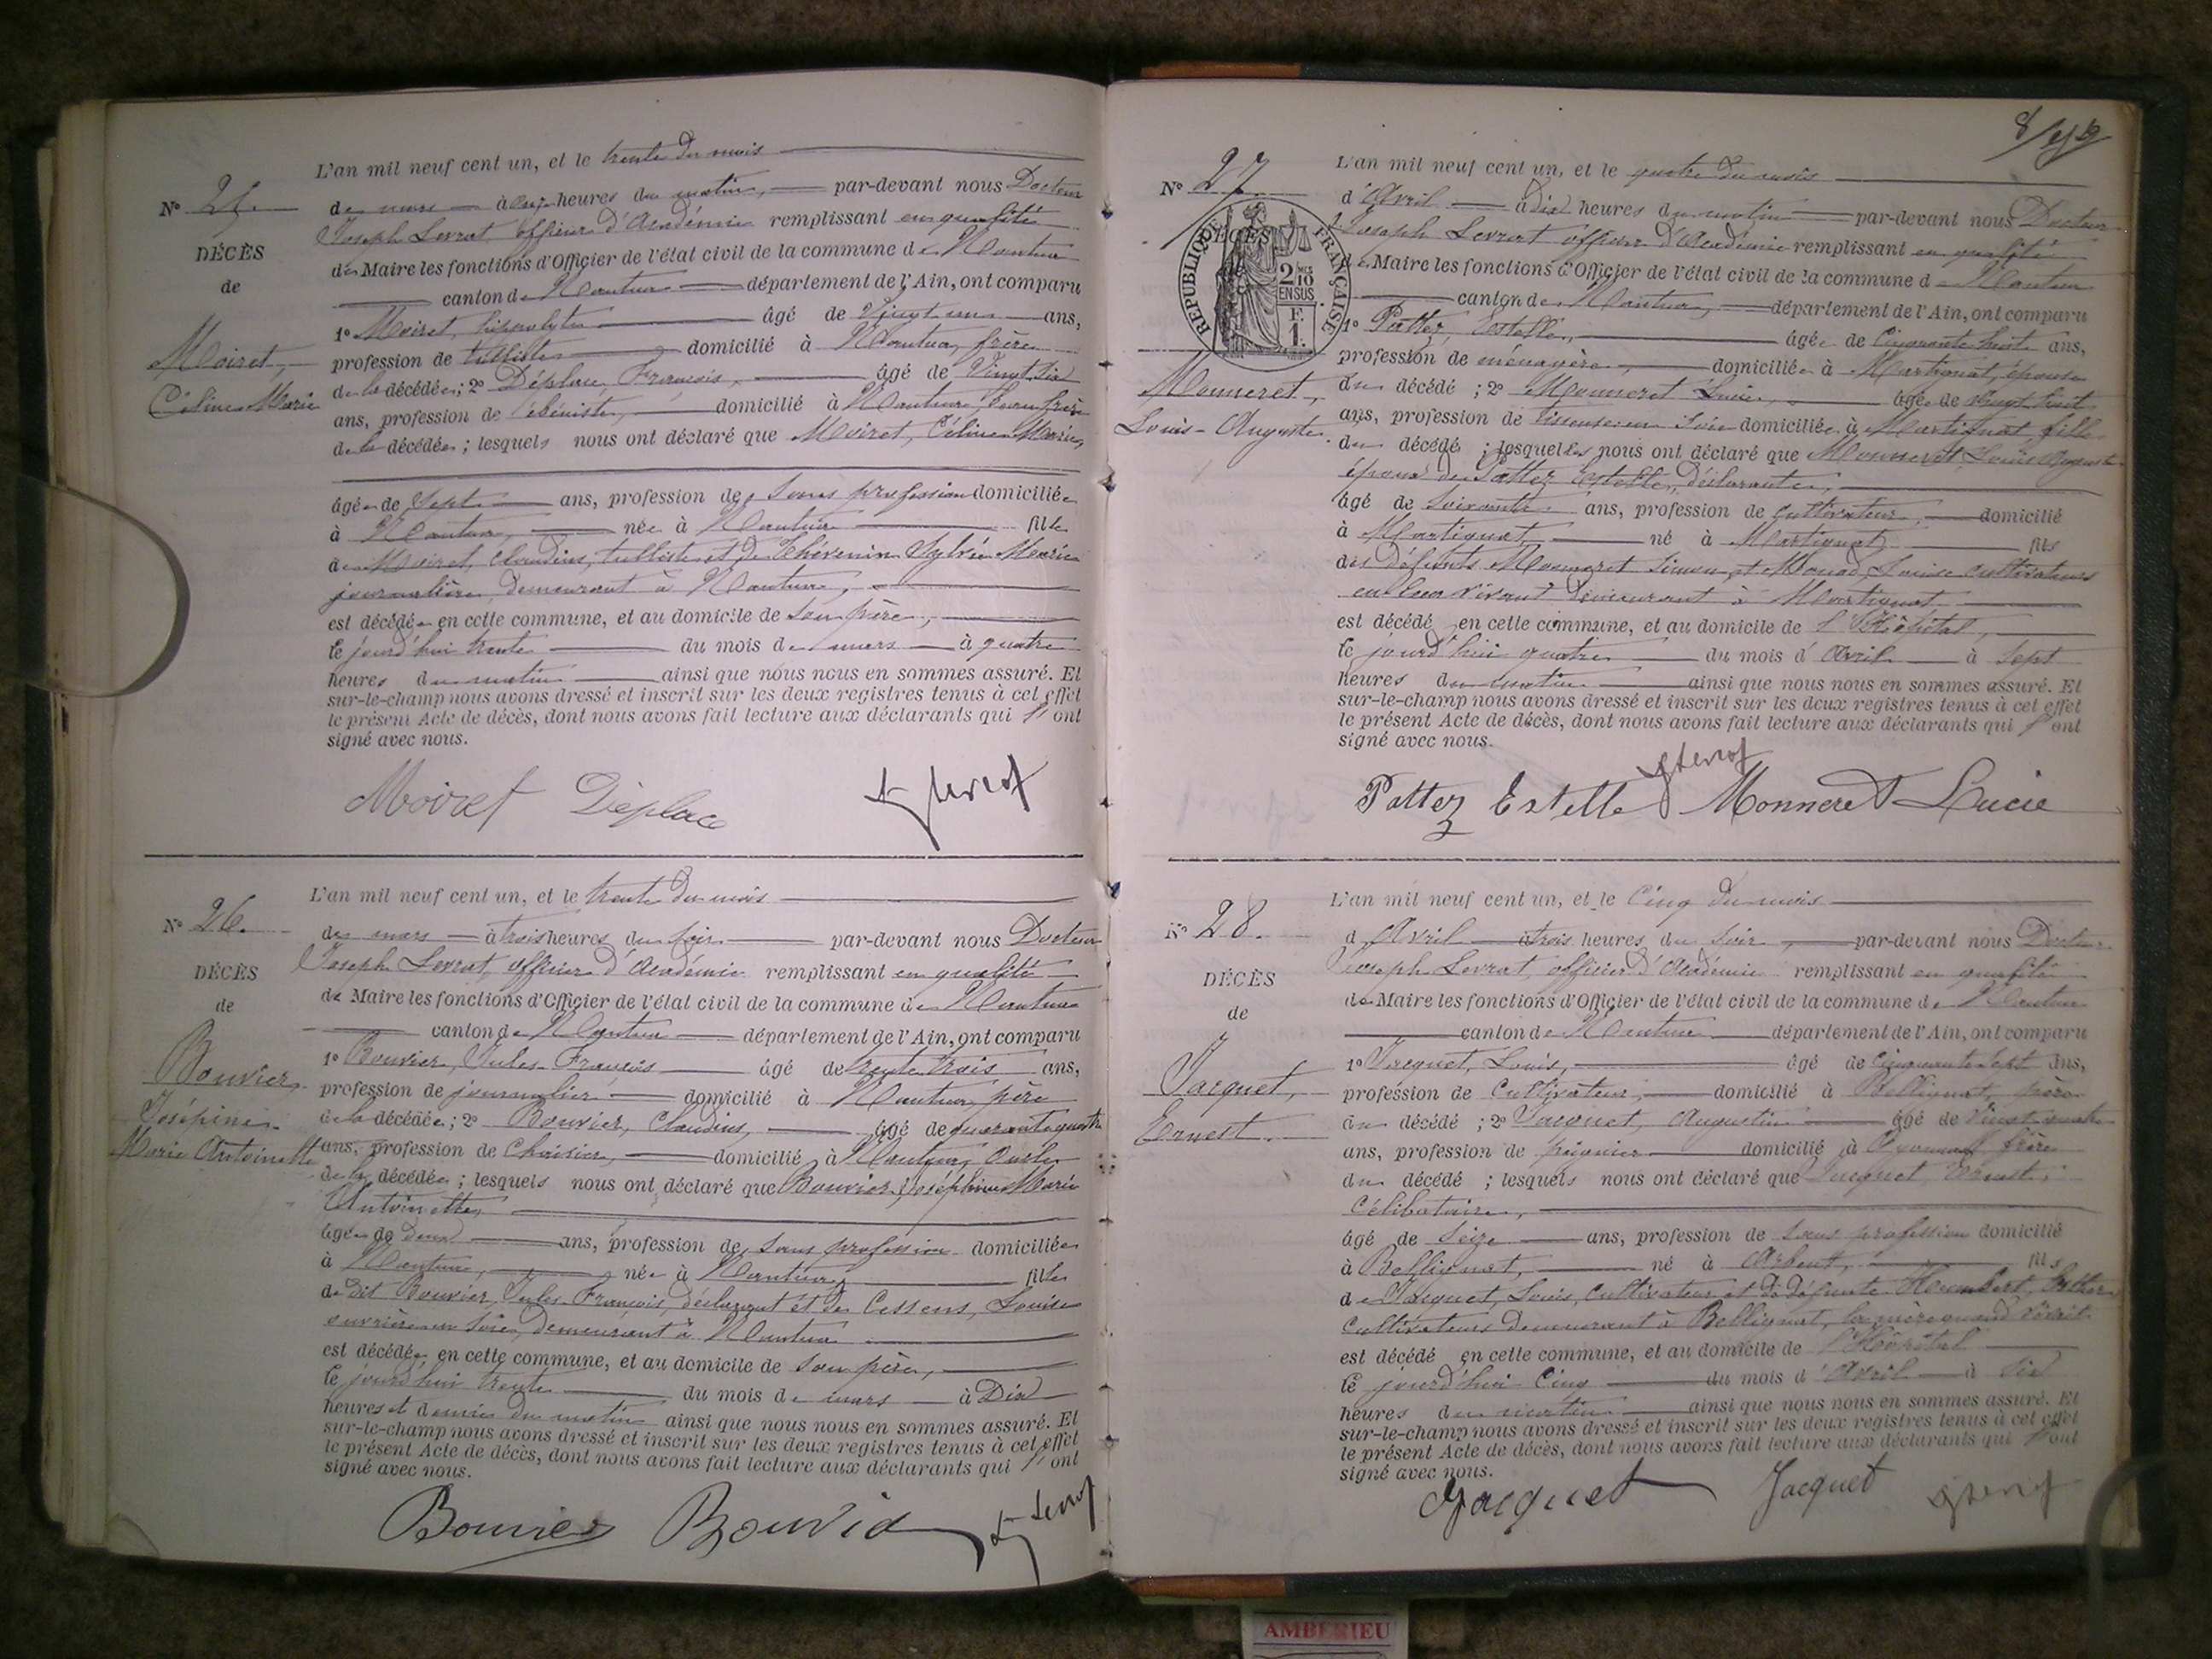 L'an mil neuf cent un, et le trente du mois
N° 25.
de mars à onze heures du matin, par-devant nous Docteur
Joseph Levrat, officier d'Académie remplissant en qualité
DÉCÈS
de Maire les fonctions d'Officier de l'état civil de la commune de Nantua
de
canton de Nantua département de l'Ain, ont comparu
1° Moiret, hippolyte âgé de Vingt un ans,
Moiret,
profession de tulliste domicilié à Nantua, frère
Céline Marie
de la décédée; 2° Déplace, François, âgé de Vingt six
ans, profession de ébéniste, domicilié à Nantua, beau frère
de la décédée; lesquels nous ont déclaré que Moiret, Céline Marie,
âgée de Sept ans, profession de sans profession domiciliée
à Nantua, née à Nantua fille
de Moiret, Claudius, tulliste et de Thévenin Sylvie Marie
journalière, demeurant à Nantua,
est décédée en cette commune, et au domicile de son père,
le jourd'hui trente du mois de mars à quatre
heures du matin ainsi que nous nous en sommes assuré. Et
sur-le-champ nous avons dressé et inscrit sur les deux registres tenus à cet effet
le présent Acte de décès, dont nous avons fait lecture aux déclarants qui l'ont
signé avec nous.
Moiret Déplace
L'an mil neuf cent un, et le trente du mois
N° 26.
de mars à trois heures du soir par-devant nous Docteur
Joseph Levrat, officier d'Académie remplissant en qualité
DÉCÈS
de Maire les fonctions d'Officier de l'état civil de la commune de Nantua
de
canton de Nantua département de l'Ain, ont comparu
1° Bouvier, Jules François âgé de trente trois ans,
Bouvier,
profession de journalier domicilié à Nantua, père
Joséphine
de la décédée; 2° Bouvier, Claudius, âgé de quarante quatre
Marie Antoinette
ans, profession de Chaisier, domicilié à Nantua, Oncle
de la décédée; lesquels nous ont déclaré que Bouvier, Joséphine Marie
Antoinette,
âgée de deux ans, profession de sans profession domiciliée
à Nantua, née à Nantua, fille
de dit Bouvier, Jules François, déclarant et de Cessens, Louise
ouvrière en soie, demeurant à Nantua
est décédée en cette commune, et au domicile de son père,
le jourd'hui trente du mois de mars à Dix
heures et demie du matin ainsi que nous nous en sommes assuré. Et
sur-le-champ nous avons dressé et inscrit sur les deux registres tenus à cet effet
le présent Acte de décès, dont nous avons fait lecture aux déclarants qui l'ont
signé avec nous.
Bouvier Bouvier
L'an mil neuf cent un, et le quatre du mois
N° 27.
d'Avril à dix heures du matin par-devant nous Docteur
Joseph Levrat officier d'Académie remplissant en qualité
RÉPUBLIQUE FRANÇAISE
2/10 EN SUS
F. 1.
de Maire les fonctions d'Officier de l'état civil de la commune de Nantua
canton de Nantua, département de l'Ain, ont comparu
1° Pattez, Estelle, âgée de Cinquante huit ans,
profession de ménagère, domiciliée à Martignat, épouse
Monneret,
du décédé; 2° Monneret Lucie, âgée de vingt huit
Louis-Auguste.
ans, profession de tisseuse en soie domiciliée à Martignat, fille
du décédé; lesquelles nous ont déclaré que Monneret, Louis Auguste
époux de Pattez Estelle, déclarante,
âgé de Soixante ans, profession de cultivateur, domicilié
à Martignat, né à Martignat, fils
des défunts Monneret Simon, et Louise cultivateurs
en leur vivant demeurant à Martignat
est décédé en cette commune, et au domicile de l'Hôpital,
le jourd'hui quatre du mois d'Avril à Sept
heures du matin ainsi que nous nous en sommes assuré. Et
sur-le-champ nous avons dressé et inscrit sur les deux registres tenus à cet effet
le présent Acte de décès, dont nous avons fait lecture aux déclarants qui l'ont
signé avec nous.
Pattez Estelle Monneret Lucie
L'an mil neuf cent un, et le Cinq du mois
N° 28.
d'Avril à trois heures du soir, par-devant nous Docteur
Joseph Levrat, officier d'Académie remplissant en qualité
DÉCÈS
de Maire les fonctions d'Officier de l'état civil de la commune de Nantua
de
canton de Nantua département de l'Ain, ont comparu
1° Jacquet, Louis, âgé de cinquante sept ans,
Jacquet,
profession de Cultivateur, domicilié à Bellignat, père
Ernest.
du décédé; 2° Jacquet, Augustin âgé de Vingt quatre
ans, profession de domicilié à Oyonnax frère
du décédé; lesquels nous ont déclaré que Jacquet Ernest,
Célibataire,
âgé de Seize ans, profession de sans profession domicilié
à Bellignat, né à Arbent, fils
de Jacquet, Louis, cultivateur et de défunte Humbert,
cultivateurs demeurant à Bellignat, la mère quand vivait
est décédé en cette commune, et au domicile de l'Hôpital
le jourd'hui Cinq du mois d'Avril à Six
heures du matin ainsi que nous nous en sommes assuré. Et
sur-le-champ nous avons dressé et inscrit sur les deux registres tenus à cet effet
le présent Acte de décès, dont nous avons fait lecture aux déclarants qui l'ont
signé avec nous.
Jacquet Jacquet
AMBERIEU